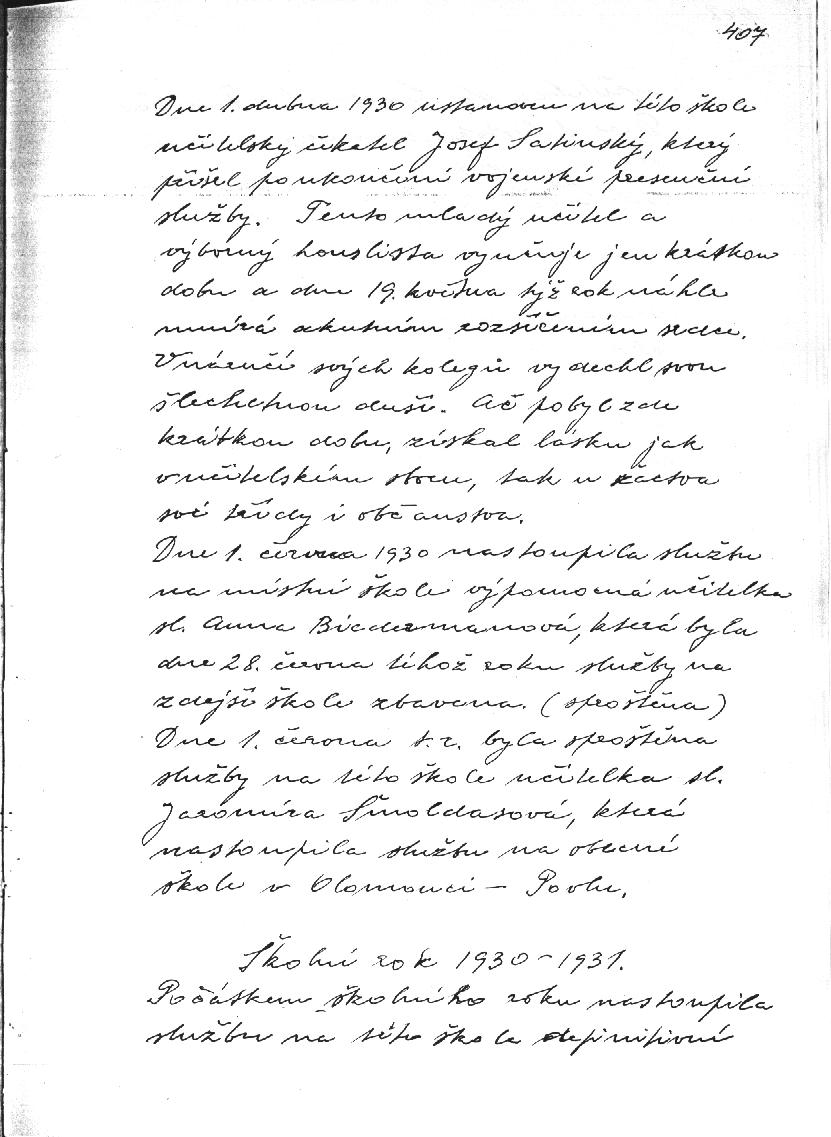 407
Dne 1. dubna 1930 ustanoven na této škole
učitelský čekatel Josef Satinský, který
přišel po ukončení vojenské presenční
služby. Tento mladý učitel a
výborný houslista vyučuje jen krátkou
dobu a dne 19. května týž rok náhle
umírá akutním rozšířením srdce.
V náručí svých kolegů vydechl svou
šlechetnou duši. Ač pobyl zde
krátkou dobu, získal lásku jak
v učitelském sboru, tak u žactva
své třídy i občanstva.
Dne 1. června 1930 nastoupila službu
na místní škole výpomocná učitelka
sl. Anna Biedermanová, která byla
dne 28. června téhož roku služby na
zdejší škole zbavena. (sproštěna)
Dne 1. června t. r. byla sproštěna
služby na této škole učitelka sl.
Jaromíra Šmoldasová, která
nastoupila službu na obecné
škole v Olomouci - Povlu.
Školní rok 1930 - 1931.
Počátkem školního roku nastoupila
službu na této škole definitivní